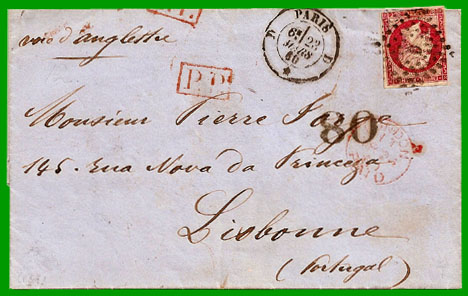 P.P.
voie d'anglettre
PARIS
6E 23
MARS
60
D D
P.P.
Monsieur Pierre
80
145. rua Nova da Princeza
Lisbonne
(Portugal)